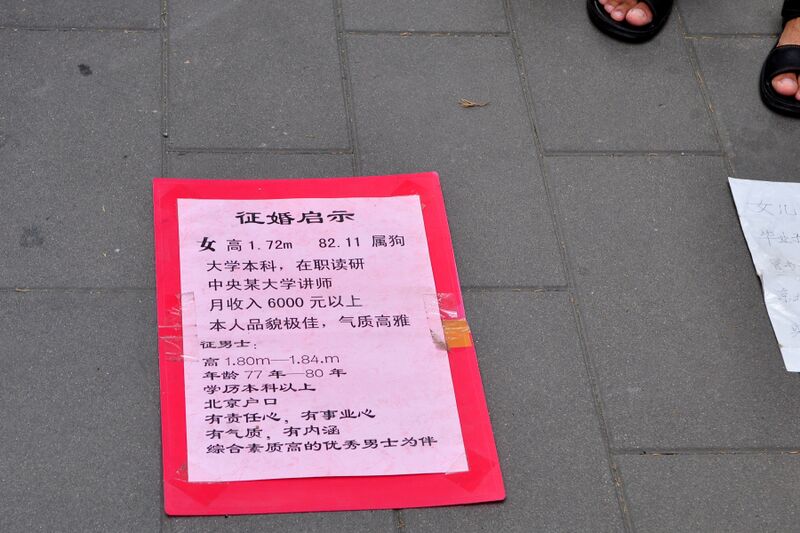 征婚启示
女 高1.72m 82.11 属狗
大学本科，在职读研
中央某大学讲师
月收入6000元以上
本人品貌极佳，气质高雅
征男士：
高1.80m—1.84.m
年龄77年—80年
学历本科以上
北京户口
有责任心，有事业心
有气质，有内涵
综合素质高的优秀男士为伴
女儿
毕业